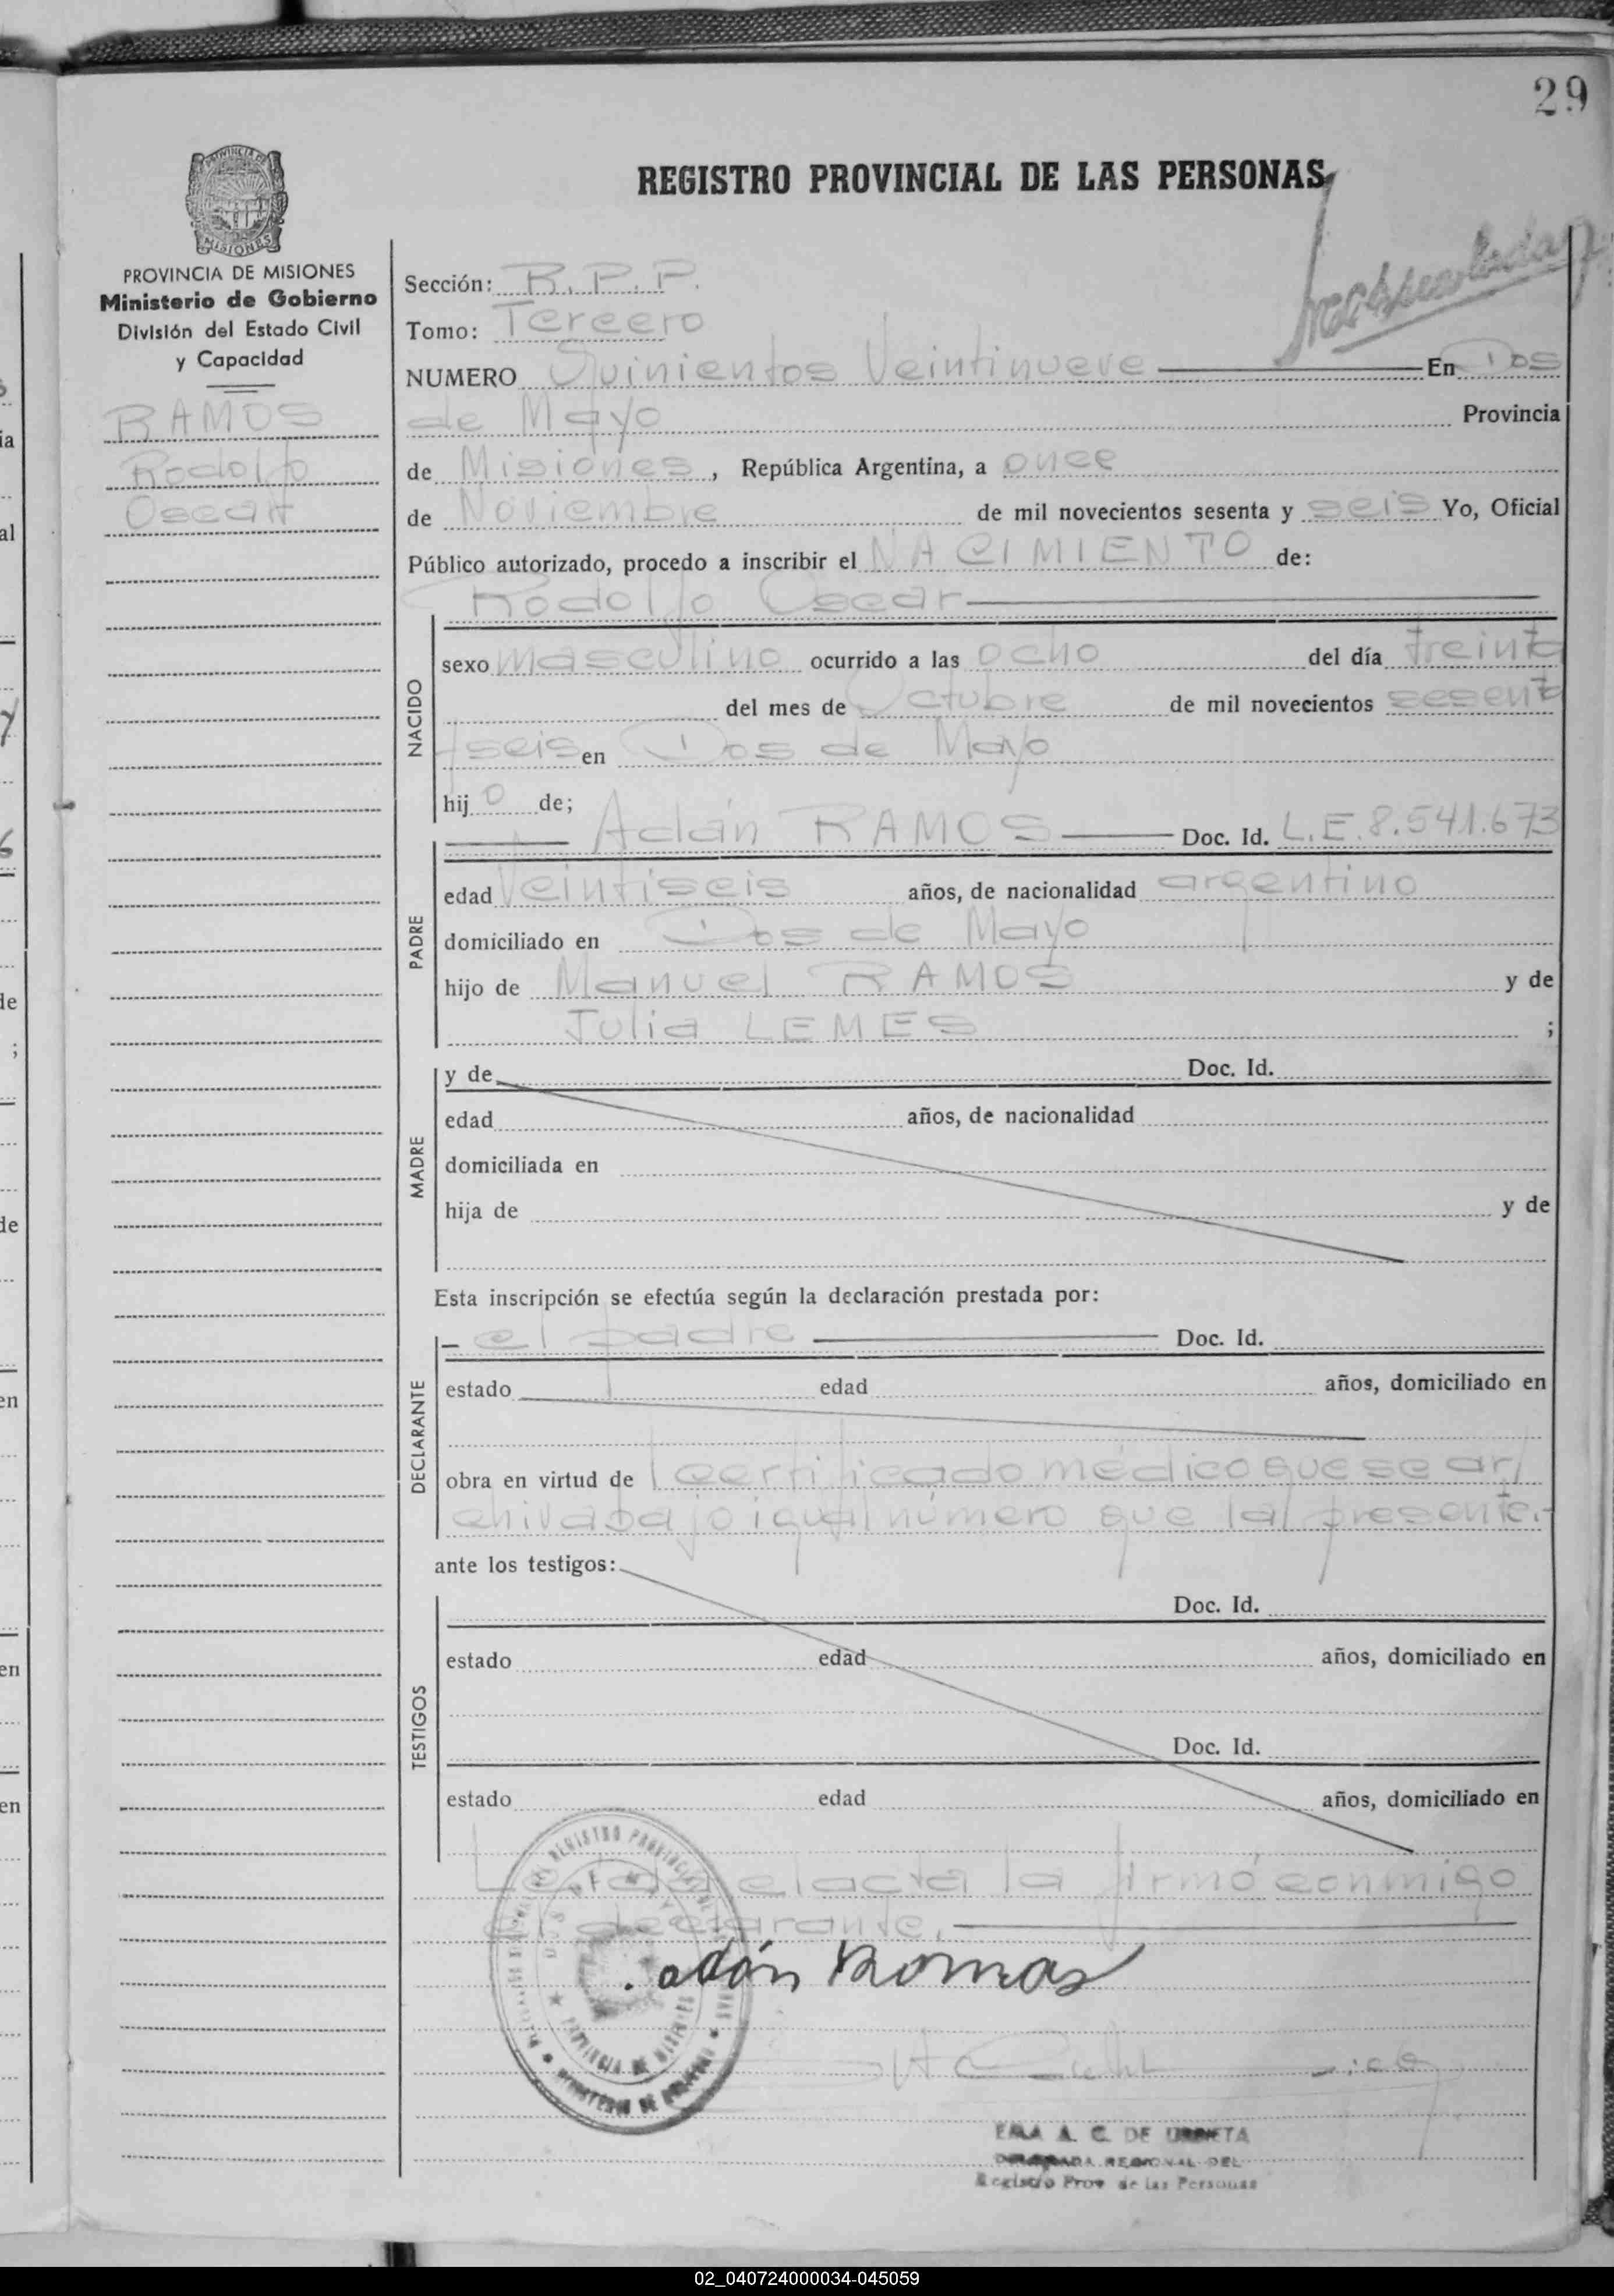 29
REGISTRO PROVINCIAL DE LAS PERSONAS
PROVINCIA DE MISIONES
Ministerio de Gobierno
División del Estado Civil
y Capacidad
RAMOS
Rodolfo
Oscar
Sección: R.P.P.
Tomo: Tercero
NUMERO Quinientos Veintinueve En Dos
de Mayo Provincia
de Misiones, República Argentina, a once
de Noviembre de mil novecientos sesenta y seis Yo, Oficial
Público autorizado, procedo a inscribir el NACIMIENTO de:
Rodolfo Oscar
NACIDO
sexo masculino ocurrido a las ocho del día treinta
del mes de Octubre de mil novecientos sesent
seis en Dos de Mayo
hijo de;
Adán RAMOS Doc. Id. L.E. 8.541.673
PADRE
edad Veintiseis años, de nacionalidad argentino
domiciliado en Dos de Mayo
hijo de Manuel RAMOS y de
Julia LEMES ;
MADRE
y de Doc. Id.
edad años, de nacionalidad
domiciliada en
hija de y de
Esta inscripción se efectúa según la declaración prestada por:
el padre Doc. Id.
DECLARANTE
estado edad años, domiciliado en
obra en virtud de l certificado médico que se ar/
chiva bajo igual número que la presente.-
ante los testigos:
TESTIGOS
Doc. Id.
estado edad años, domiciliado en
Doc. Id.
estado edad años, domiciliado en
Leída el acta la firmó conmigo
el declarante.
adán Ramos
DOS DE MAYO
PROVINCIA DE MISIONES
MINISTERIO DE GOBIERNO
A. C. DE URRUETA
REGIONAL DEL
Registro Prov de las Personas
02_040724000034-045059